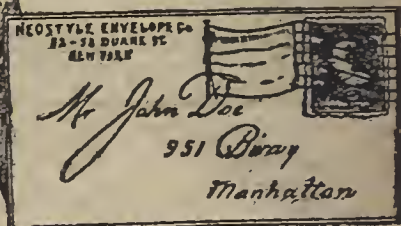 NEOSTYLE ENVELOPE Co
22-52 DUANE ST
NEW YORK
Mr John Doe
951 Bway
Manhattan